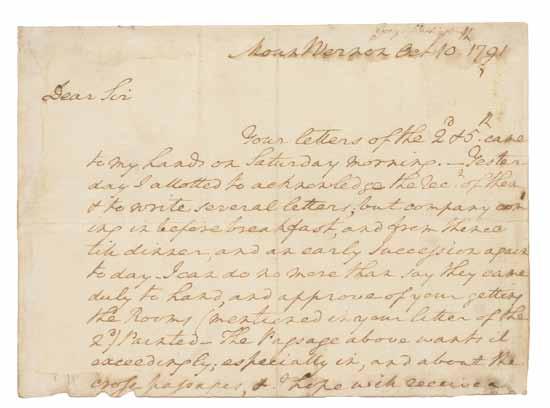 Mount Vernon Oct 10th 1791
Dear Sir
Your letters of the 2d & 5th came
to my hands on Saturday morning. — Yester
day I allotted to acknowledge the rect of them
& to write several letters, but company com
ing in before breakfast, and from thence
till dinner, and an early succession again
to day. I can do no more than say they came
duly to hand, and approve of your getting
the Rooms (mentioned in your letter of the
2d) Painted — The Passage above wants it
exceedingly; especially in, and about the
cross passages, & I hope will receive a